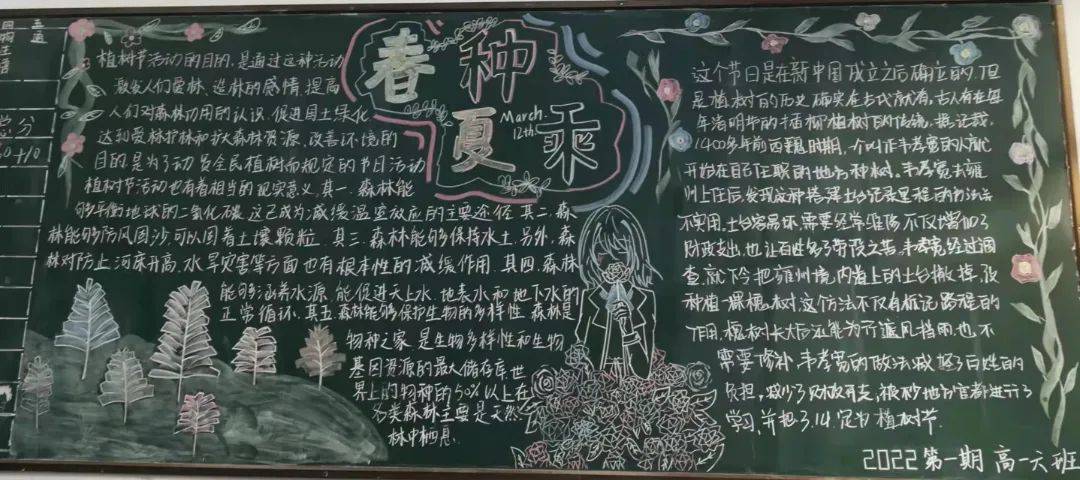 总分
春种
夏乘
March.
12th
植树节活动的目的,是通过这种活动
激发人们爱林、造林的感情,提高
人们对森林功用的认识,促进国土绿化
达到爱林护林和扩大森林资源、改善环境的
目的是为了动员全民植树而规定的节日活动
植树节活动也有着相当的现实意义.其一.森林能
够平衡地球的二氧化碳.这已成为减缓温室效应的主要途径.其二.森
林能够防风固沙,可以固着土壤颗粒.其三.森林能够保持水土.另外,森
林对防止河床升高.水旱灾害等方面也有根本性的减缓作用.其四.森林
能够涵养水源,能促进天上水,地表水和地下水的
正常循环.其五.森林能够保护生物的多样性.森林是
物种之家.是生物多样性和生物
基因资源的最大储存库世
界上的物种的50%以上在
各类森林主要是天然
林中栖息.
这个节日是在新中国成立之后确立的,但
是植树的历史确实在古代就有.古人有在每
年清明节的插柳植树的传统.据记载,
1400多年前西魏时期,一个叫作韦孝宽的人就
开始在自己任职的地方种树.韦孝宽去雍
州上任后发现这种搭土台记录里程的方法
不实用.土台容易坏,需要经常维修不仅增加了
财政支出,也让百姓多了劳役之苦.韦孝宽经过调
查,就下令把雍州境内道上的土台撤掉,改
种植一棵槐树.这个方法不仅有标记路程的
作用.槐树长大后还能为行人遮风挡雨,也不
需要修补.韦孝宽的做法减轻了百姓的
负担,减少了财政开支,被
地方官都进行了
学习,并把3.12定为植树节.
2022第一期 高一六班